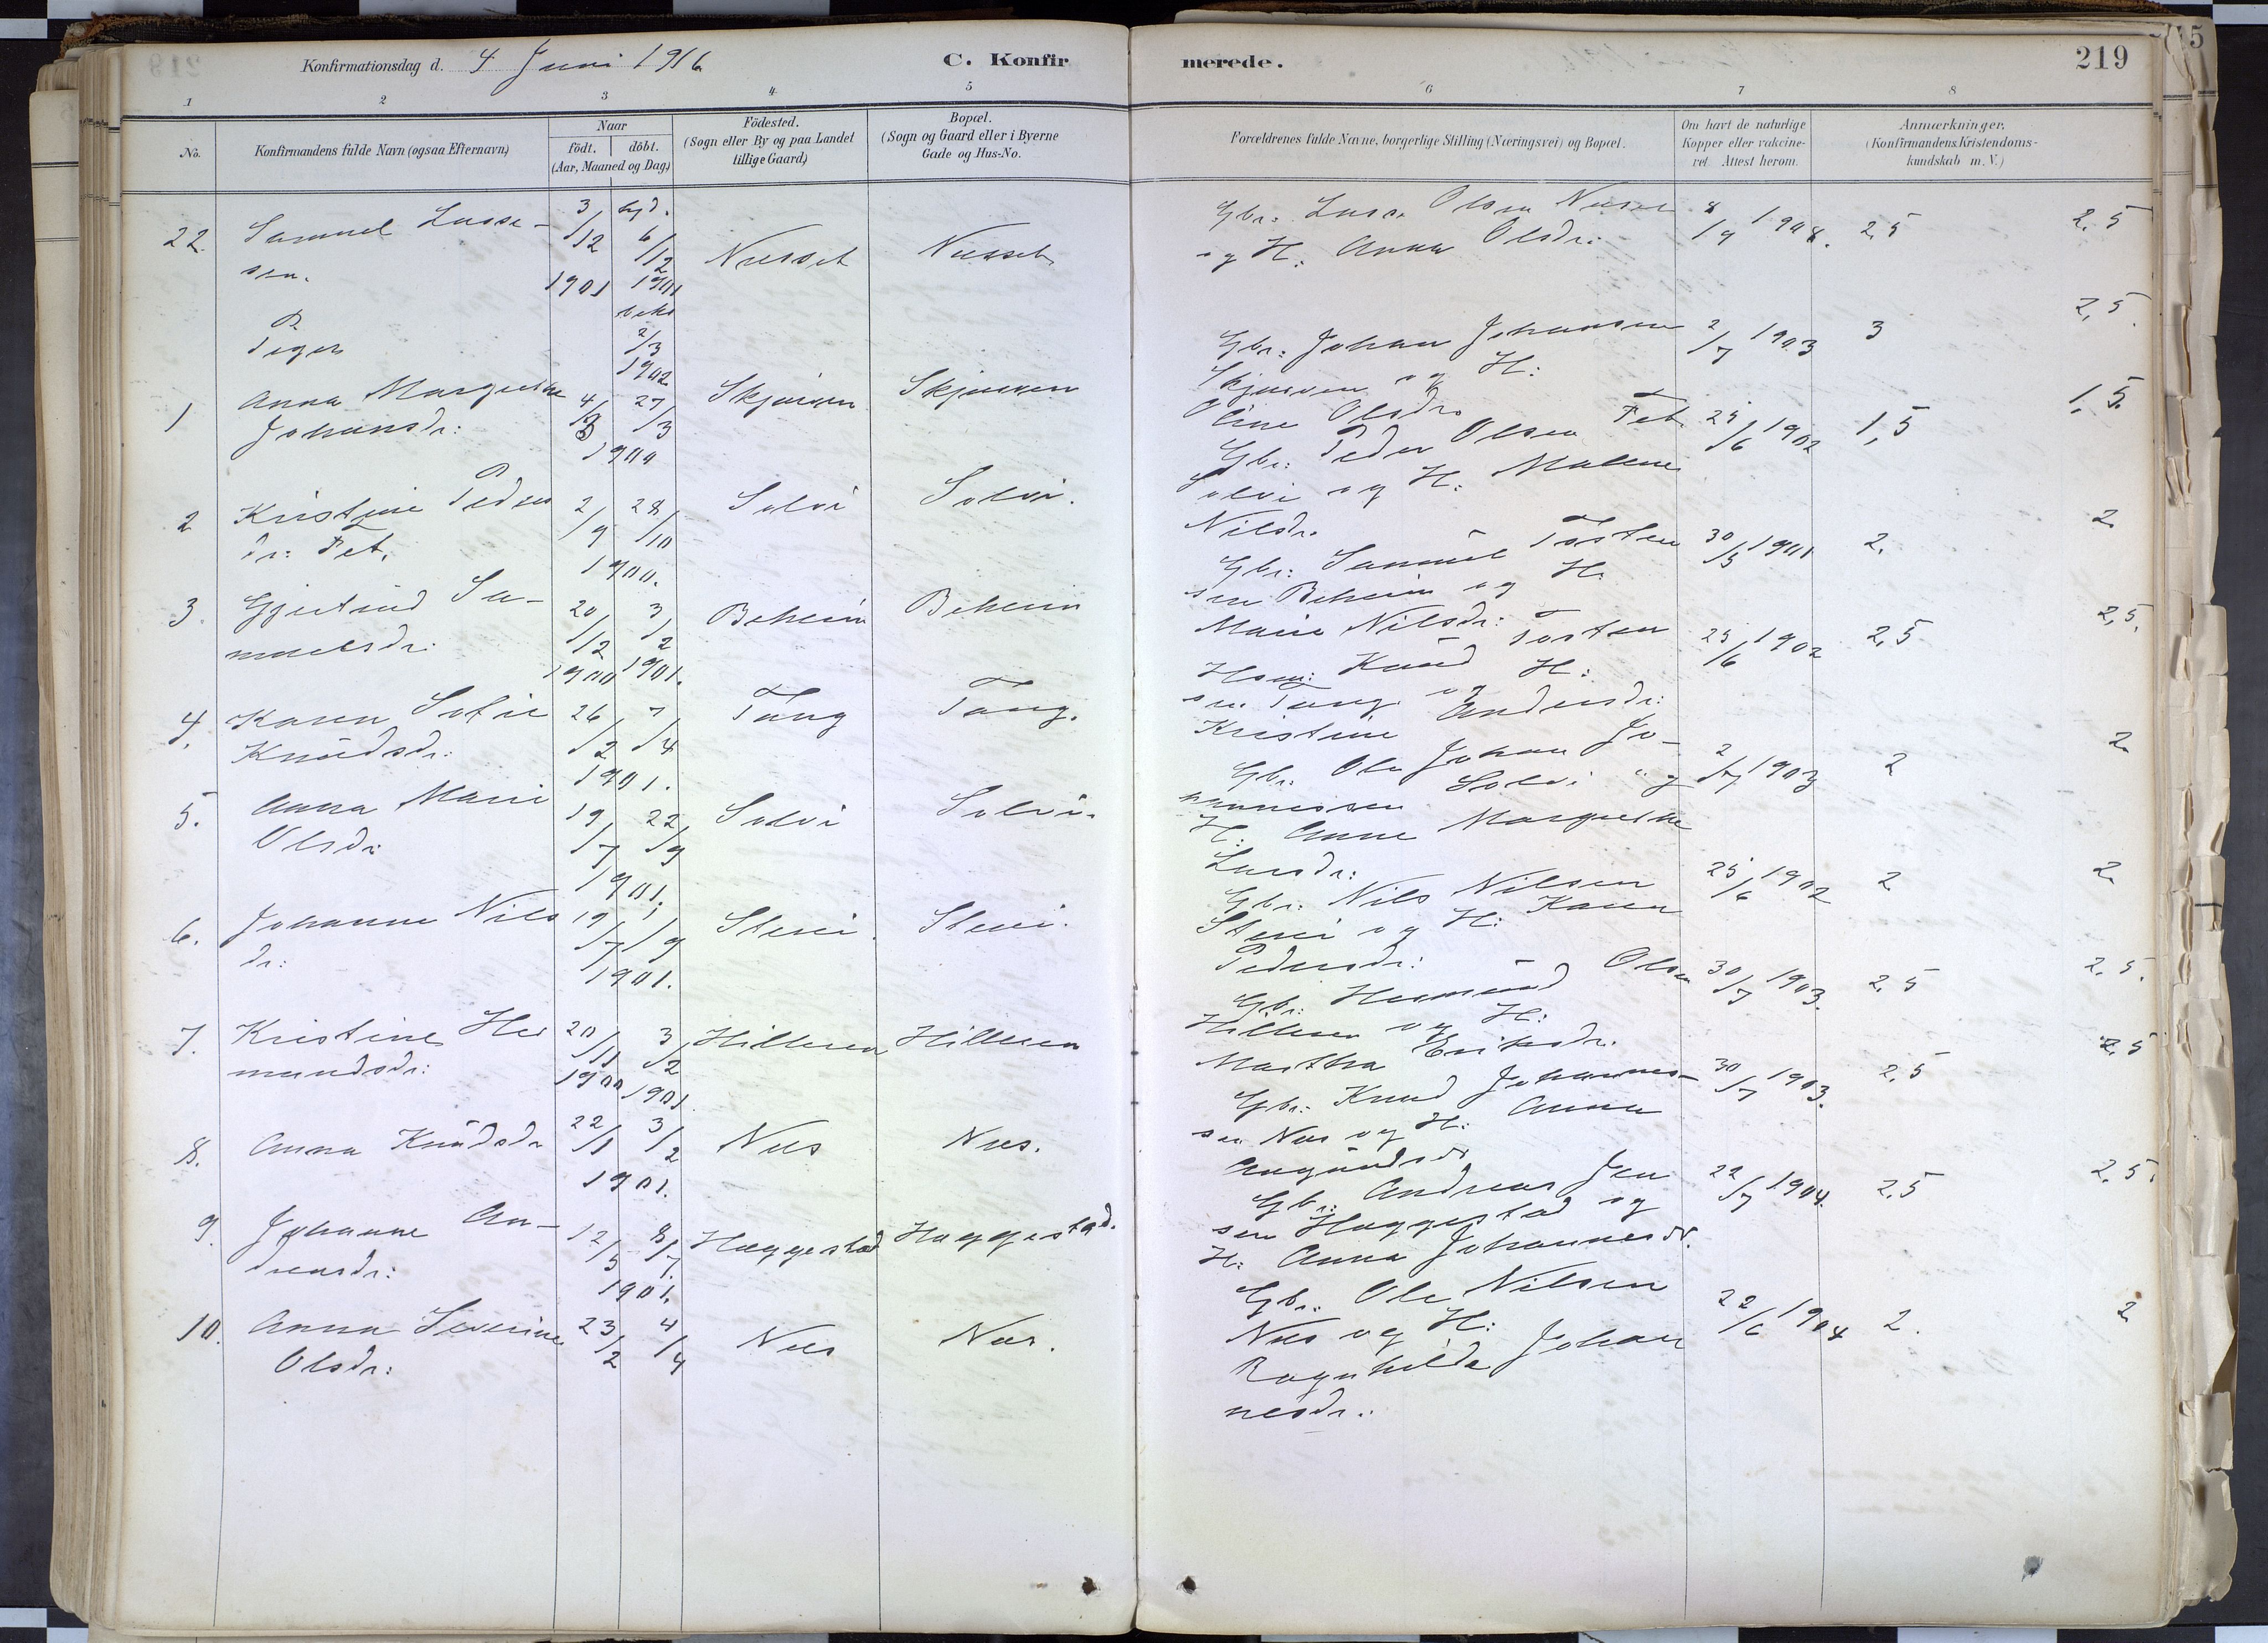 Konfirmationsdag d. 4 Juni 1916
C. Konfir
merede.
219
1 2 3 4 5 6 7 8
No.
Konfirmandens fulde Navn (ogsaa Efternavn)
Naar
födt. döbt.
(Aar, Maaned og Dag)
Födested.
(Sogn eller By og paa Landet
tillige Gaard)
Bopæl.
(Sogn og Gaard eller i Byerne
Gade og Hus-No.
Forældrenes fulde Navne, borgerlige Stilling (Næringsvei) og Bopæl.
Om havt de naturlige
Kopper eller vakcine-
ret. Attest herom.
Anmærkninger.
(Konfirmandens Kristendoms-
kundskab m. V.)
22. Samuel Lasse-
sen.
3/12 1901
hjd. 6/12 1901
beks 2/3 1902
Nesset
Nesset
Gbr: Lasse Olsen Nesset
og H: Anna Olsdr:
8/9 1908.
2,5
2,5
Piger
1 Anna Margrethe
Johansdr:
27/3
Skjerven
Skjerven
Gbr: Johan Johansen
Skjerven og H:
Oline Olsdr.
2/7 1903
3
2,5.
2 Kristine Peders
dr: Fet.
2/9 28/10
1900.
Solvi
Solvi.
Gbr: Peder Olsen Fet
Solvi og H: Malene
Nilsdr.
25/6 1902
1,5
1,5.
3. Gjertrud Sa-
muelsdr:
20/12 1900
3/2 1901.
Beheim
Beheim
Gbr: Samuel Tosten
sen Beheim og H:
Marie Nilsdr:
30/5 1901
2.
2
4. Karen Sofie
Knudsdr:
26/2 7/4
1901.
Tang
Tang.
Hsm: Knud Tosten
sen Tang og H:
Kristine Andersdr:
25/6 1902
2,5
2,5.
5. Anna Marie
Olsdr:
19/7 22/9
1901.
Solvi
Solvi.
Gbr: Ole Johan Jo-
hannessen Solvi og
H: Anne Margrethe
Larsdr:
2/7 1903
2
2
6. Johanne Nils
dr:
19/7 1/9
1901.
Steri.
Steri.
Gbr: Nils Nilsen
Steri og H: Karen
Pedersdr:
25/6 1902
2
2
7. Kristine Her
mundsdr:
20/11 1900
3/2 1901
Hilleren
Hilleren
Gbr: Hermund Olsen
Hilleren og H:
Martha Eriksdr:
30/7 1903.
2,5
2,5.
8. Anna Knudsdr
22/1 3/2
1901.
Nes
Nes.
Gbr: Knud Johannes-
sen Nes og H: Anna
Augundsdr
30/7 1903.
2,5
2,5
9. Johanne An-
dreasdr:
12/5 8/7
1901.
Haggestad
Haggestad.
Gbr: Andreas Jen
sen Haggestad og
H: Anna Johannesdr.
22/7 1904.
2,5
2,5.
10. Anna Severine
Olsdr:
23/2 4/4
Nes
Nes.
Gbr: Ole Nilsen
Nes og H:
Ragnhilda Johan
nesdr.
22/6 1904
2.
2